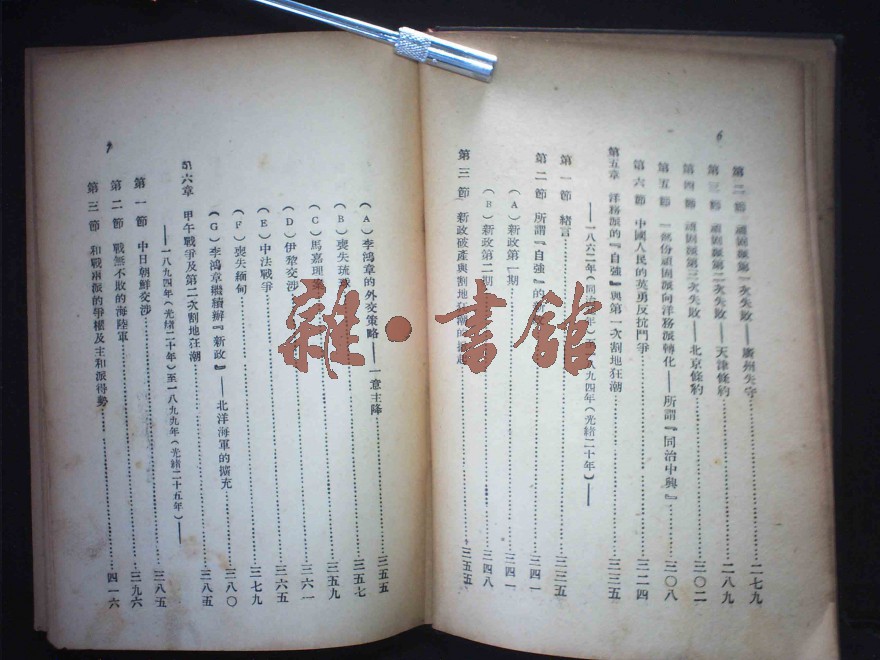 6
第二節 頑固派第一次失敗——廣州失守……二七九
第三節 頑固派第二次失敗——天津條約……二八九
第四節 頑固派第三次失敗——北京條約……三〇二
第五節 一部份頑固派向洋務派轉化——所謂『同治中興』……三〇八
第六節 中國人民的英勇反抗鬥爭……三二四
第五章 洋務派的『自強』與第一次割地狂潮……三三五
——一八六二年(同治 年)至一八九四年(光緒二十年)——
第一節 緒言……三三五
第二節 所謂『自強』的 ……三四一
(A)新政第一期……三四一
(B)新政第二期……三四八
第三節 新政破產與割地狂潮的 ……三五五
(A)李鴻章的外交策略——一意主降……三五五
(B)喪失琉球……三五七
(C)馬嘉理案……三五九
(D)伊犂交涉……三六一
(E)中法戰爭……三六五
(F)喪失緬甸……三七九
(G)李鴻章繼續辦『新政』——北洋海軍的擴充……三八〇
六章 甲午戰爭及第二次割地狂潮……三八五
——一八九四年(光緒二十年)至一八九九年(光緒二十五年)——
第一節 中日朝鮮交涉……三八五
第二節 戰無不敗的海陸軍……三九六
第三節 和戰兩派的爭權及主和派得勢……四一六
雜·書館